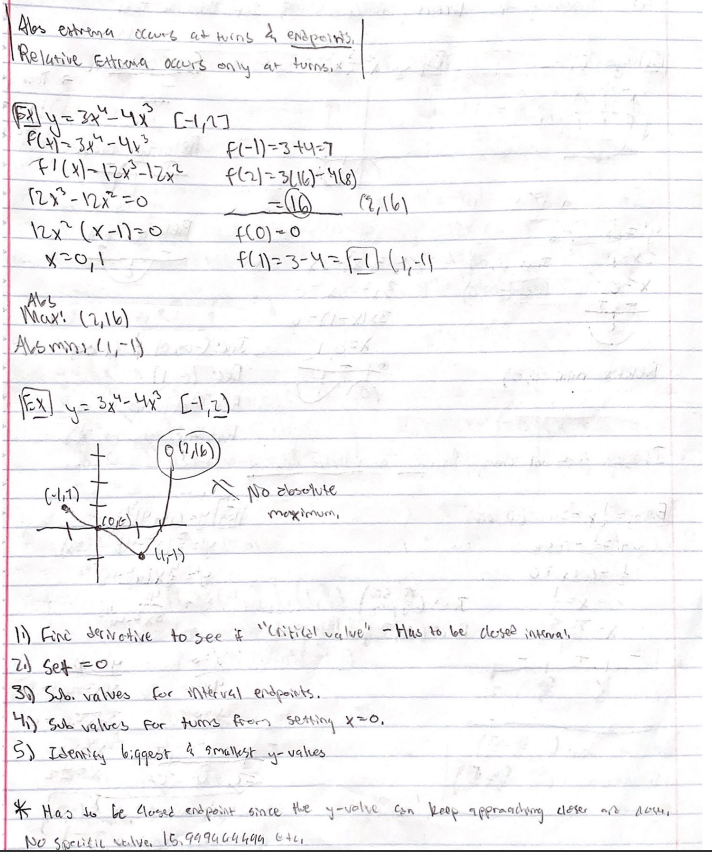 Abs extrema occurs at turns & endpoints.
Relative Extrema occurs only at turns.
Ex y = 3x⁴ - 4x³ [-1,2]
f(x) = 3x⁴ - 4x³
f'(x) = 12x³ - 12x²
12x³ - 12x² = 0
12x² (x-1) = 0
x = 0, 1
f(-1) = 3+4 = 7
f(2) = 3(16) - 4(8)
= 16 (2,16)
f(0) = 0
f(1) = 3-4 = -1 (1,-1)
Abs
Max: (2,16)
Abs min: (1,-1)
Ex y = 3x⁴ - 4x³ [-1,2)
(2,16)
(-1,7)
No absolute
maximum.
(0,0)
(1,-1)
1.) Find derivative to see if "critical value" - Has to be closed interval.
2.) Set = 0
3.) Sub. values for interval endpoints.
4.) Sub values for turns from setting x=0.
5.) Identify biggest & smallest y-values
* Has to be closed endpoint since the y-value can keep approaching closer and
No specific value. 15.999999999 etc.